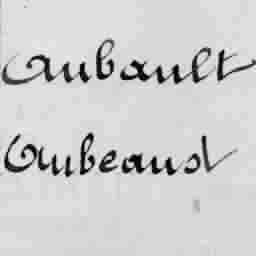 Aubault
Aubeaust